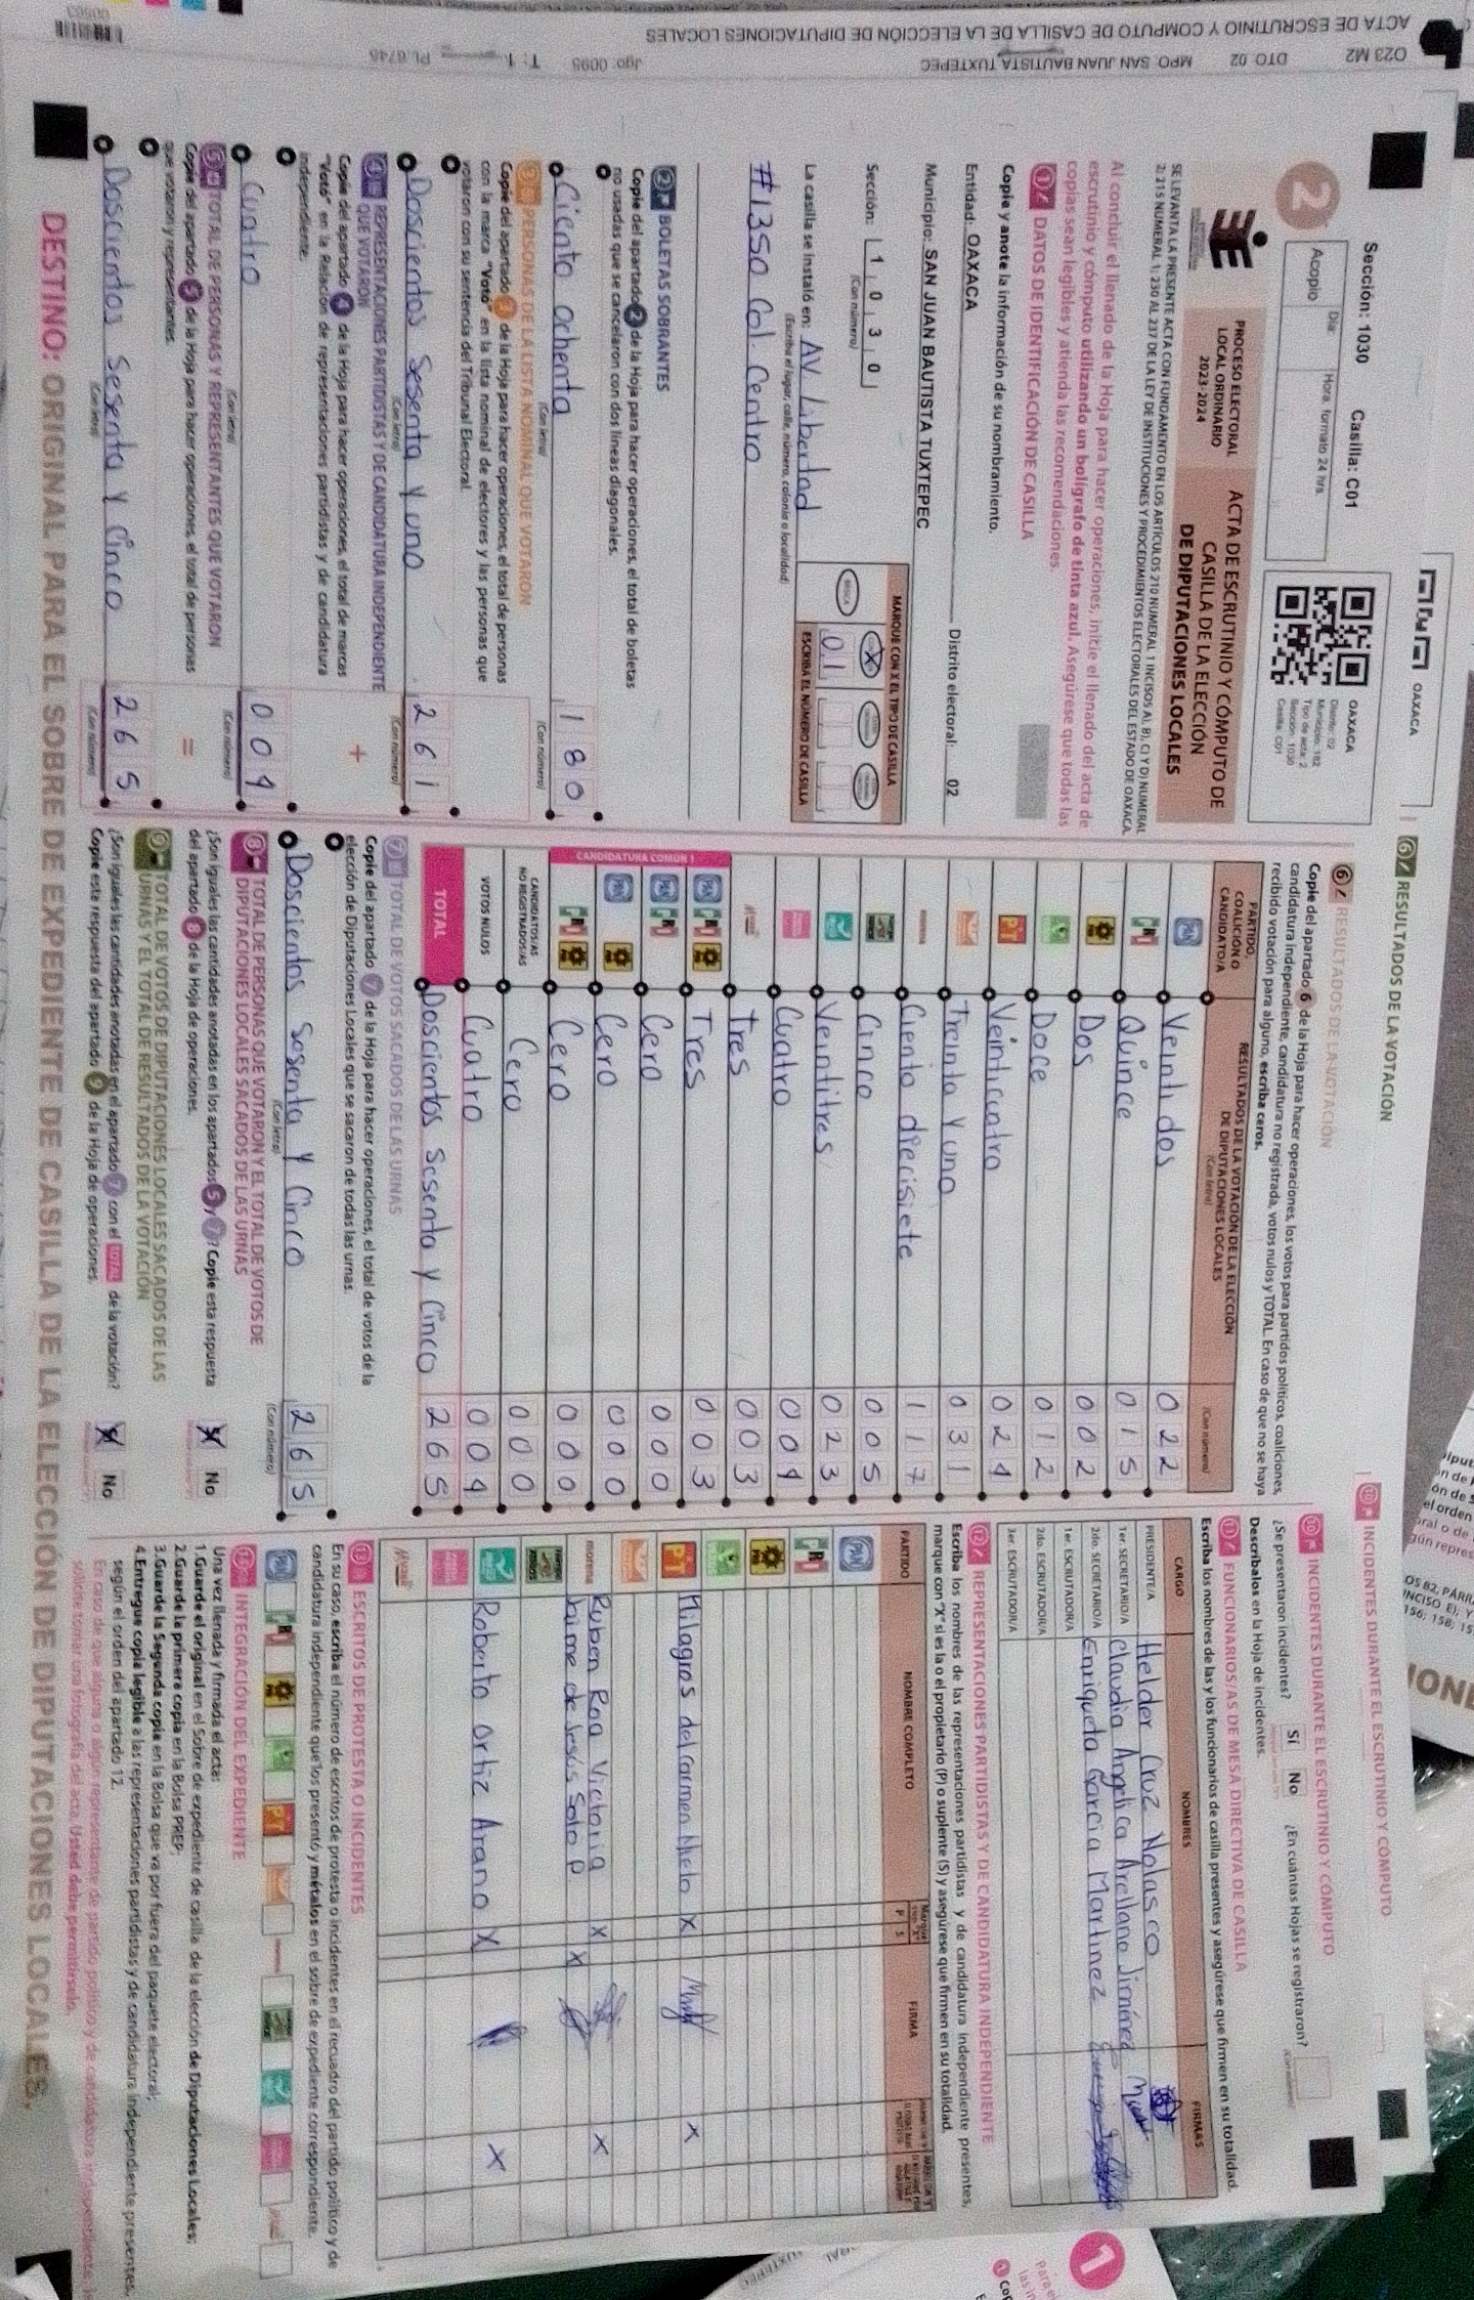 OAXACA
Sección: 1030 Casilla: C01
2
Acopio
Día:
Hora: formato 24 hrs.
OAXACA
Distrito: 02
Municipio: 182
Tipo de acta: 2
Sección: 1030
Casilla: C01
PROCESO ELECTORAL
LOCAL ORDINARIO
2023-2024
ACTA DE ESCRUTINIO Y CÓMPUTO DE
CASILLA DE LA ELECCIÓN
DE DIPUTACIONES LOCALES
SE LEVANTA LA PRESENTE ACTA CON FUNDAMENTO EN LOS ARTÍCULOS 210 NUMERAL 1 INCISOS A), B), C) Y D) NUMERAL
2; 215 NUMERAL 1; 230 AL 237 DE LA LEY DE INSTITUCIONES Y PROCEDIMIENTOS ELECTORALES DEL ESTADO DE OAXACA.
Al concluir el llenado de la Hoja para hacer operaciones, inicie el llenado del acta de
escrutinio y cómputo utilizando un bolígrafo de tinta azul. Asegúrese que todas las
copias sean legibles y atienda las recomendaciones.
1 DATOS DE IDENTIFICACIÓN DE CASILLA
Copie y anote la información de su nombramiento.
Entidad: OAXACA Distrito electoral: 02
Municipio: SAN JUAN BAUTISTA TUXTEPEC
Sección: 1 0 3 0
(Con número)
MARQUE CON X EL TIPO DE CASILLA
BÁSICA X
ESCRIBA EL NÚMERO DE CASILLA
01
La casilla se instaló en: AV Libertad
(Escriba el lugar, calle, número, colonia o localidad)
#1350 Col. Centro
2 BOLETAS SOBRANTES
Copie del apartado 2 de la Hoja para hacer operaciones, el total de boletas
no usadas que se cancelaron con dos líneas diagonales.
Ciento ochenta 180
(Con letra) (Con número)
3 PERSONAS DE LA LISTA NOMINAL QUE VOTARON
Copie del apartado 3 de la Hoja para hacer operaciones, el total de personas
con la marca "Votó" en la lista nominal de electores y las personas que
votaron con su sentencia del Tribunal Electoral.
Doscientos Sesenta y uno 261
(Con letra) (Con número)
4 REPRESENTACIONES PARTIDISTAS Y DE CANDIDATURA INDEPENDIENTE
QUE VOTARON
+
Copie del apartado 4 de la Hoja para hacer operaciones, el total de marcas
"Votó" en la Relación de representaciones partidistas y de candidatura
independiente.
Cuatro 004
(Con letra) (Con número)
5 TOTAL DE PERSONAS Y REPRESENTANTES QUE VOTARON
=
Copie del apartado 5 de la Hoja para hacer operaciones, el total de personas
que votaron y representantes.
Doscientos Sesenta y Cinco 265
(Con letra) (Con número)
6 RESULTADOS DE LA VOTACIÓN
6 RESULTADOS DE LA VOTACIÓN
Copie del apartado 6 de la Hoja para hacer operaciones, los votos para partidos políticos, coaliciones,
candidatura independiente, candidatura no registrada, votos nulos y TOTAL. En caso de que no se haya
recibido votación para alguno, escriba ceros.
PARTIDO,
COALICIÓN O
CANDIDATO/A
RESULTADOS DE LA VOTACIÓN DE LA ELECCIÓN
DE DIPUTACIONES LOCALES
(Con letra) (Con número)
PAN Veinti dos 022
PRI Quince 015
PRD Dos 002
Doce 012
PT Veinticuatro 024
Treinta Y uno 031
morena Ciento diecisiete 117
Cinco 005
Veintitres 023
Cuatro 004
Tres 003
CANDIDATURA COMÚN 1
PAN PRI PRD Tres 003
PAN PRI Cero 000
PAN PRD Cero 000
PRI PRD Cero 000
CANDIDATOS/AS
NO REGISTRADOS/AS Cero 000
VOTOS NULOS Cuatro 004
TOTAL Doscientos Sesenta y Cinco 265
7 TOTAL DE VOTOS SACADOS DE LAS URNAS
Copie del apartado 7 de la Hoja para hacer operaciones, el total de votos de la
elección de Diputaciones Locales que se sacaron de todas las urnas.
Doscientos Sesenta y Cinco 265
(Con letra) (Con número)
8 TOTAL DE PERSONAS QUE VOTARON Y EL TOTAL DE VOTOS DE
DIPUTACIONES LOCALES SACADOS DE LAS URNAS
¿Son iguales las cantidades anotadas en los apartados 5 y 7? Copie esta respuesta
del apartado 8 de la Hoja de operaciones.
X No
9 TOTAL DE VOTOS DE DIPUTACIONES LOCALES SACADOS DE LAS
URNAS Y EL TOTAL DE RESULTADOS DE LA VOTACIÓN
¿Son iguales las cantidades anotadas en el apartado 7 con el TOTAL de la votación?
Copie esta respuesta del apartado 9 de la Hoja de operaciones.
X No
10 INCIDENTES DURANTE EL ESCRUTINIO Y CÓMPUTO
10 INCIDENTES DURANTE EL ESCRUTINIO Y CÓMPUTO
¿Se presentaron incidentes? Sí No ¿En cuántas Hojas se registraron?
(Con número)
Descríbalos en la Hoja de incidentes.
11 FUNCIONARIOS/AS DE MESA DIRECTIVA DE CASILLA
Escriba los nombres de las y los funcionarios de casilla presentes y asegúrese que firmen en su totalidad.
CARGO NOMBRES FIRMAS
PRESIDENTE/A Helder Cruz Nolasco
1er. SECRETARIO/A Claudia Angelica Arellano Jiménez
2do. SECRETARIO/A Enriqueta Garcia Martinez
1er. ESCRUTADOR/A
2do. ESCRUTADOR/A
3er. ESCRUTADOR/A
12 REPRESENTACIONES PARTIDISTAS Y DE CANDIDATURA INDEPENDIENTE
Escriba los nombres de las representaciones partidistas y de candidatura independiente presentes,
marque con "X" si es la o el propietario (P) o suplente (S) y asegúrese que firmen en su totalidad.
PARTIDO NOMBRE COMPLETO P S FIRMA
PAN
PRI
PRD
PT Milagros del Carmen Nieto X X
morena Ruben Roa Victoria X X
Jaime de Jesús Soto P X
Roberto Ortiz Arano X X
13 ESCRITOS DE PROTESTA O INCIDENTES
En su caso, escriba el número de escritos de protesta o incidentes en el recuadro del partido político y de
candidatura independiente que los presentó y métalos en el sobre de expediente correspondiente.
14 INTEGRACIÓN DEL EXPEDIENTE
Una vez llenada y firmada el acta:
1. Guarde el original en el Sobre de expediente de casilla de la elección de Diputaciones Locales;
2. Guarde la primera copia en la Bolsa PREP;
3. Guarde la Segunda copia en la Bolsa que va por fuera del paquete electoral;
4. Entregue copia legible a las representaciones partidistas y de candidatura independiente presentes,
según el orden del apartado 12.
En caso de que alguna o algún representante de partido político y de candidatura independiente, le
solicite tomar una fotografía del acta, Usted debe permitírselo.
DESTINO: ORIGINAL PARA EL SOBRE DE EXPEDIENTE DE CASILLA DE LA ELECCIÓN DE DIPUTACIONES LOCALES.
O23 M2 DTO 02 MPO: SAN JUAN BAUTISTA TUXTEPEC Jgo: 0095 T: 1 PL:6745
ACTA DE ESCRUTINIO Y COMPUTO DE CASILLA DE LA ELECCIÓN DE DIPUTACIONES LOCALES
el orden
OS 82, PÁRR
INCISO E); Y
156; 158; 15
IONE
1